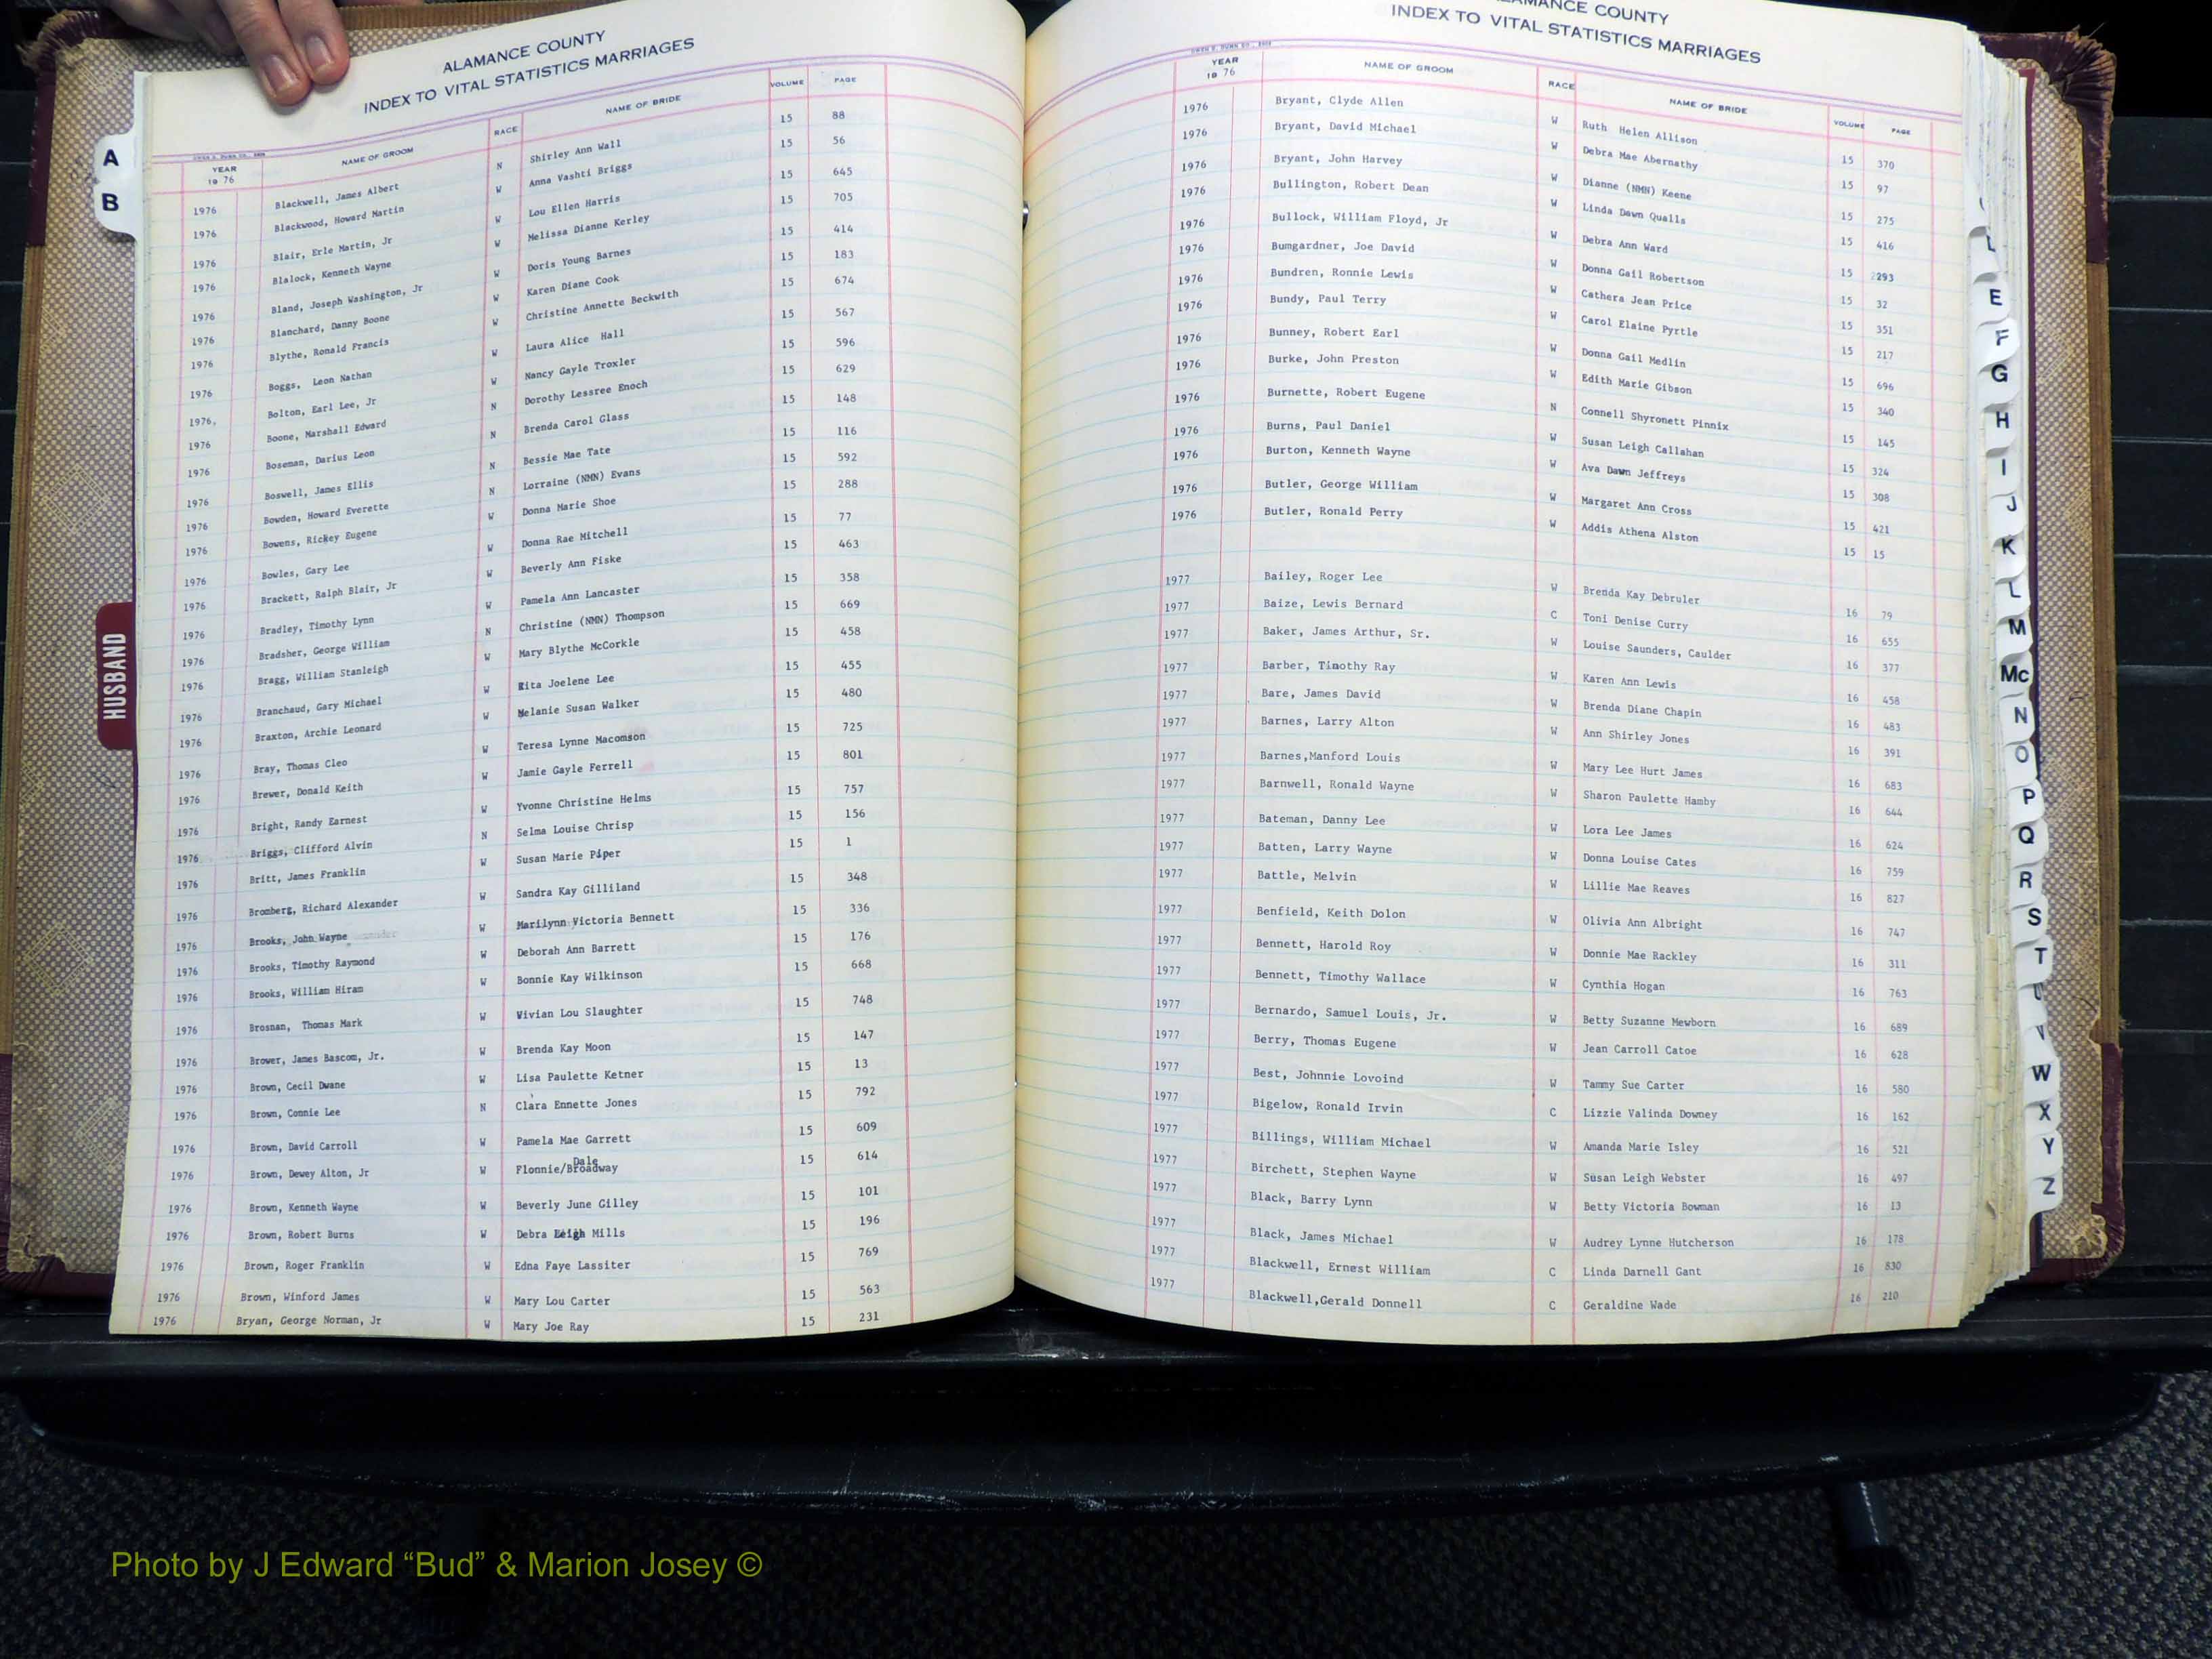 ALAMANCE COUNTY
INDEX TO VITAL STATISTICS MARRIAGES
YEAR 1976 NAME OF GROOM RACE NAME OF BRIDE VOLUME PAGE
1976 Blackwell, James Albert N Shirley Ann Wall 15 88
1976 Blackwood, Howard Martin W Anna Vashti Briggs 15 56
1976 Blair, Erle Martin, Jr W Lou Ellen Harris 15 645
1976 Blalock, Kenneth Wayne W Melissa Dianne Kerley 15 705
1976 Bland, Joseph Washington, Jr W Doris Young Barnes 15 414
1976 Blanchard, Danny Boone W Karen Diane Cook 15 183
1976 Blythe, Ronald Francis W Christine Annette Beckwith 15 674
1976 Boggs, Leon Nathan W Laura Alice Hall 15 567
1976. Bolton, Earl Lee, Jr W Nancy Gayle Troxler 15 596
1976 Boone, Marshall Edward N Dorothy Lessree Enoch 15 629
1976 Boseman, Darius Leon N Brenda Carol Glass 15 148
1976 Boswell, James Ellis N Bessie Mae Tate 15 116
1976 Bowden, Howard Everette N Lorraine (NMN) Evans 15 592
1976 Bowens, Rickey Eugene W Donna Marie Shoe 15 288
1976 Bowles, Gary Lee W Donna Rae Mitchell 15 77
1976 Brackett, Ralph Blair, Jr W Beverly Ann Fiske 15 463
1976 Bradley, Timothy Lynn W Pamela Ann Lancaster 15 358
1976 Bradsher, George William N Christine (NMN) Thompson 15 669
1976 Bragg, William Stanleigh W Mary Blythe McCorkle 15 458
1976 Branchaud, Gary Michael W Rita Joelene Lee 15 455
1976 Braxton, Archie Leonard W Melanie Susan Walker 15 480
1976 Bray, Thomas Cleo W Teresa Lynne Macomson 15 725
1976 Brewer, Donald Keith W Jamie Gayle Ferrell 15 801
1976 Bright, Randy Earnest W Yvonne Christine Helms 15 757
1976 Briggs, Clifford Alvin N Selma Louise Chrisp 15 156
1976 Britt, James Franklin W Susan Marie Piper 15 1
1976 Bromberg, Richard Alexander W Sandra Kay Gilliland 15 348
1976 Brooks, John Wayne W Marilynn Victoria Bennett 15 336
1976 Brooks, Timothy Raymond W Deborah Ann Barrett 15 176
1976 Brooks, William Hiram W Bonnie Kay Wilkinson 15 668
1976 Brosnan, Thomas Mark W Vivian Lou Slaughter 15 748
1976 Brower, James Bascom, Jr. W Brenda Kay Moon 15 147
1976 Brown, Cecil Dwane W Lisa Paulette Ketner 15 13
1976 Brown, Connie Lee N Clara Ennette Jones 15 792
1976 Brown, David Carroll W Pamela Mae Garrett 15 609
Dale
1976 Brown, Dewey Alton, Jr W Flonnie/Broadway 15 614
1976 Brown, Kenneth Wayne W Beverly June Gilley 15 101
1976 Brown, Robert Burns W Debra Leigh Mills 15 196
1976 Brown, Roger Franklin W Edna Faye Lassiter 15 769
1976 Brown, Winford James W Mary Lou Carter 15 563
1976 Bryan, George Norman, Jr W Mary Joe Ray 15 231
A
B
HUSBAND
COUNTY
INDEX TO VITAL STATISTICS MARRIAGES
YEAR 1976 NAME OF GROOM RACE NAME OF BRIDE VOLUME PAGE
1976 Bryant, Clyde Allen W Ruth Helen Allison 15 370
1976 Bryant, David Michael W Debra Mae Abernathy 15 97
1976 Bryant, John Harvey W Dianne (NMN) Keene 15 275
1976 Bullington, Robert Dean W Linda Dawn Qualls 15 416
1976 Bullock, William Floyd, Jr W Debra Ann Ward 15 293
1976 Bumgardner, Joe David W Donna Gail Robertson 15 32
1976 Bundren, Ronnie Lewis W Cathera Jean Price 15 351
1976 Bundy, Paul Terry W Carol Elaine Pyrtle 15 217
1976 Bunney, Robert Earl W Donna Gail Medlin 15 696
1976 Burke, John Preston W Edith Marie Gibson 15 340
1976 Burnette, Robert Eugene N Connell Shyronett Pinnix 15 145
1976 Burns, Paul Daniel W Susan Leigh Callahan 15 324
1976 Burton, Kenneth Wayne W Ava Dawn Jeffreys 15 308
1976 Butler, George William W Margaret Ann Cross 15 421
1976 Butler, Ronald Perry W Addis Athena Alston 15 15
1977 Bailey, Roger Lee W Brenda Kay Debruler 16 79
1977 Baize, Lewis Bernard C Toni Denise Curry 16 655
1977 Baker, James Arthur, Sr. W Louise Saunders, Caulder 16 377
1977 Barber, Timothy Ray W Karen Ann Lewis 16 458
1977 Bare, James David W Brenda Diane Chapin 16 483
1977 Barnes, Larry Alton W Ann Shirley Jones 16 391
1977 Barnes,Manford Louis W Mary Lee Hurt James 16 683
1977 Barnwell, Ronald Wayne W Sharon Paulette Hamby 16 644
1977 Bateman, Danny Lee W Lora Lee James 16 624
1977 Batten, Larry Wayne W Donna Louise Cates 16 759
1977 Battle, Melvin W Lillie Mae Reaves 16 827
1977 Benfield, Keith Dolon W Olivia Ann Albright 16 747
1977 Bennett, Harold Roy W Donnie Mae Rackley 16 311
1977 Bennett, Timothy Wallace W Cynthia Hogan 16 763
1977 Bernardo, Samuel Louis, Jr. W Betty Suzanne Mewborn 16 689
1977 Berry, Thomas Eugene W Jean Carroll Catoe 16 628
1977 Best, Johnnie Lovoind W Tammy Sue Carter 16 580
1977 Bigelow, Ronald Irvin C Lizzie Valinda Downey 16 162
1977 Billings, William Michael W Amanda Marie Isley 16 521
1977 Birchett, Stephen Wayne W Susan Leigh Webster 16 497
1977 Black, Barry Lynn W Betty Victoria Bowman 16 13
1977 Black, James Michael W Audrey Lynne Hutcherson 16 178
1977 Blackwell, Ernest William C Linda Darnell Gant 16 830
1977 Blackwell,Gerald Donnell C Geraldine Wade 16 210
E
F
G
H
I
J
K
L
M
Mc
N
O
P
Q
R
S
T
U
V
W
X
Y
Z
Photo by J Edward “Bud” & Marion Josey ©